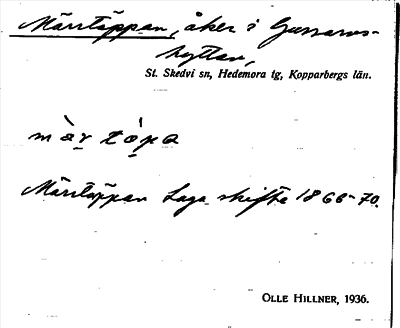 Märrtäppan, åker i Gussarvs-
hyttan,
St. Skedvi sn, Hedemora tg, Kopparbergs län.
Märrtäppan Laga skifte 1866-70.
OLLE HILLNER, 1936.